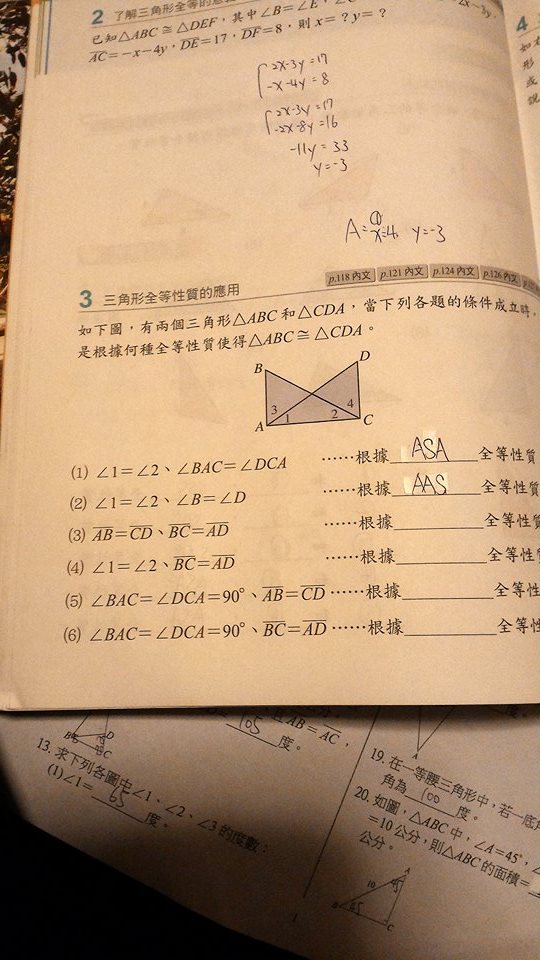 2 了解三角形全等的意
已知△ABC≅△DEF，其中∠B=∠E，
2x-3y，
AC=-x-4y，DE=17，DF=8，則x=？y=？
2x-3y=17
-x-4y=8
2x-3y=17
-2x-8y=16
-11y=33
y=-3
A=① x=4, y=-3
3 三角形全等性質的應用
p.118 內文 p.121 內文 p.124 內文 p.126 內文
如下圖，有兩個三角形△ABC和△CDA，當下列各題的條件成立時，
是根據何種全等性質使得△ABC≅△CDA。
B D
3 1 2 4
A C
(1) ∠1=∠2、∠BAC=∠DCA ……根據 ASA 全等性質
(2) ∠1=∠2、∠B=∠D ……根據 AAS 全等性質
(3) AB=CD、BC=AD ……根據 全等性
(4) ∠1=∠2、BC=AD ……根據 全等性
(5) ∠BAC=∠DCA=90°、AB=CD ……根據 全等性
(6) ∠BAC=∠DCA=90°、BC=AD ……根據 全等性
4
如右
形
或
說
AB=AC，
105 度。
B D
C
13. 求下列各圖中∠1、∠2、∠3的度數：
(1)∠1= 65 度。
A
19. 在一等腰三角形中，若一底角
角為 100 度。
20. 如圖，△ABC中，∠A=45°，
=10公分，則△ABC的面積=
公分。
A
10 45
B 45 C
1